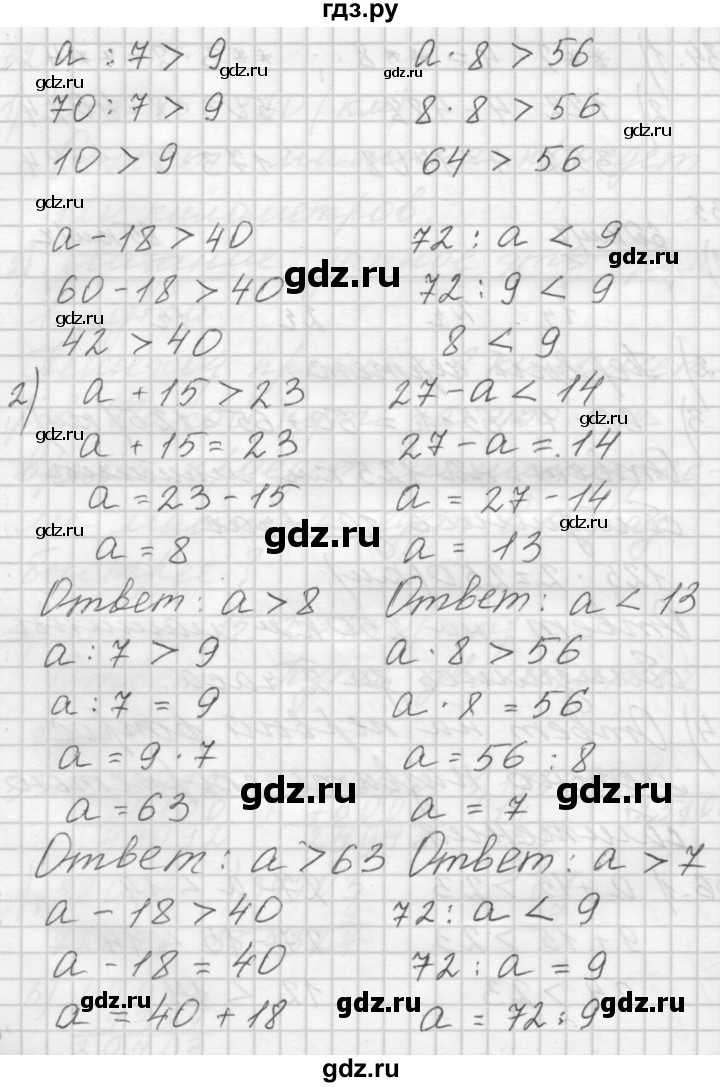 гдз.ру
a : 7 > 9 a · 8 > 56
gdz.ru gdz.ru gdz.ru
70 : 7 > 9 8 · 8 > 56
gdz.ru
10 > 9 64 > 56
gdz.ru
a - 18 > 40 72 : a < 9
gdz.ru gdz.ru
60 - 18 > 40 72 : 9 < 9
gdz.ru gdz.ru
42 > 40 8 < 9
2) a + 15 > 23 27 - a < 14
gdz.ru gdz.ru
a + 15 = 23 27 - a = 14
a = 23 - 15 a = 27 - 14
gdz.ru gdz.ru gdz.ru
a = 8 a = 13
Ответ: a > 8 Ответ: a < 13
a : 7 > 9 a · 8 > 56
a : 7 = 9 a · 8 = 56
a = 9 · 7 a = 56 : 8
gdz.ru gdz.ru
a = 63 a = 7
Ответ: a > 63 Ответ: a > 7
a - 18 > 40 72 : a < 9
a - 18 = 40 72 : a = 9
gdz.ru gdz.ru gdz.ru
a = 40 + 18 a = 72 : 9
gdz.ru